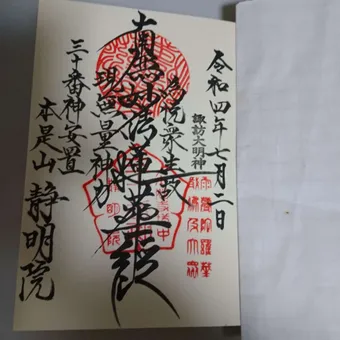 令和四年七月二日
諏訪大明神
為悦衆生故
南無妙法蓮華経
現無量神力
三十番神安置
本是山 静明院